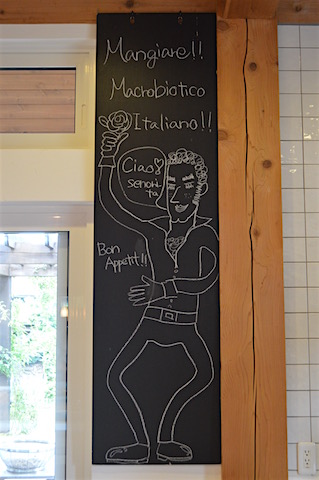 Mangiare!!
Macrobiotico
Italiano!!
Ciao
senori-
ta
Bon
Appetit!!